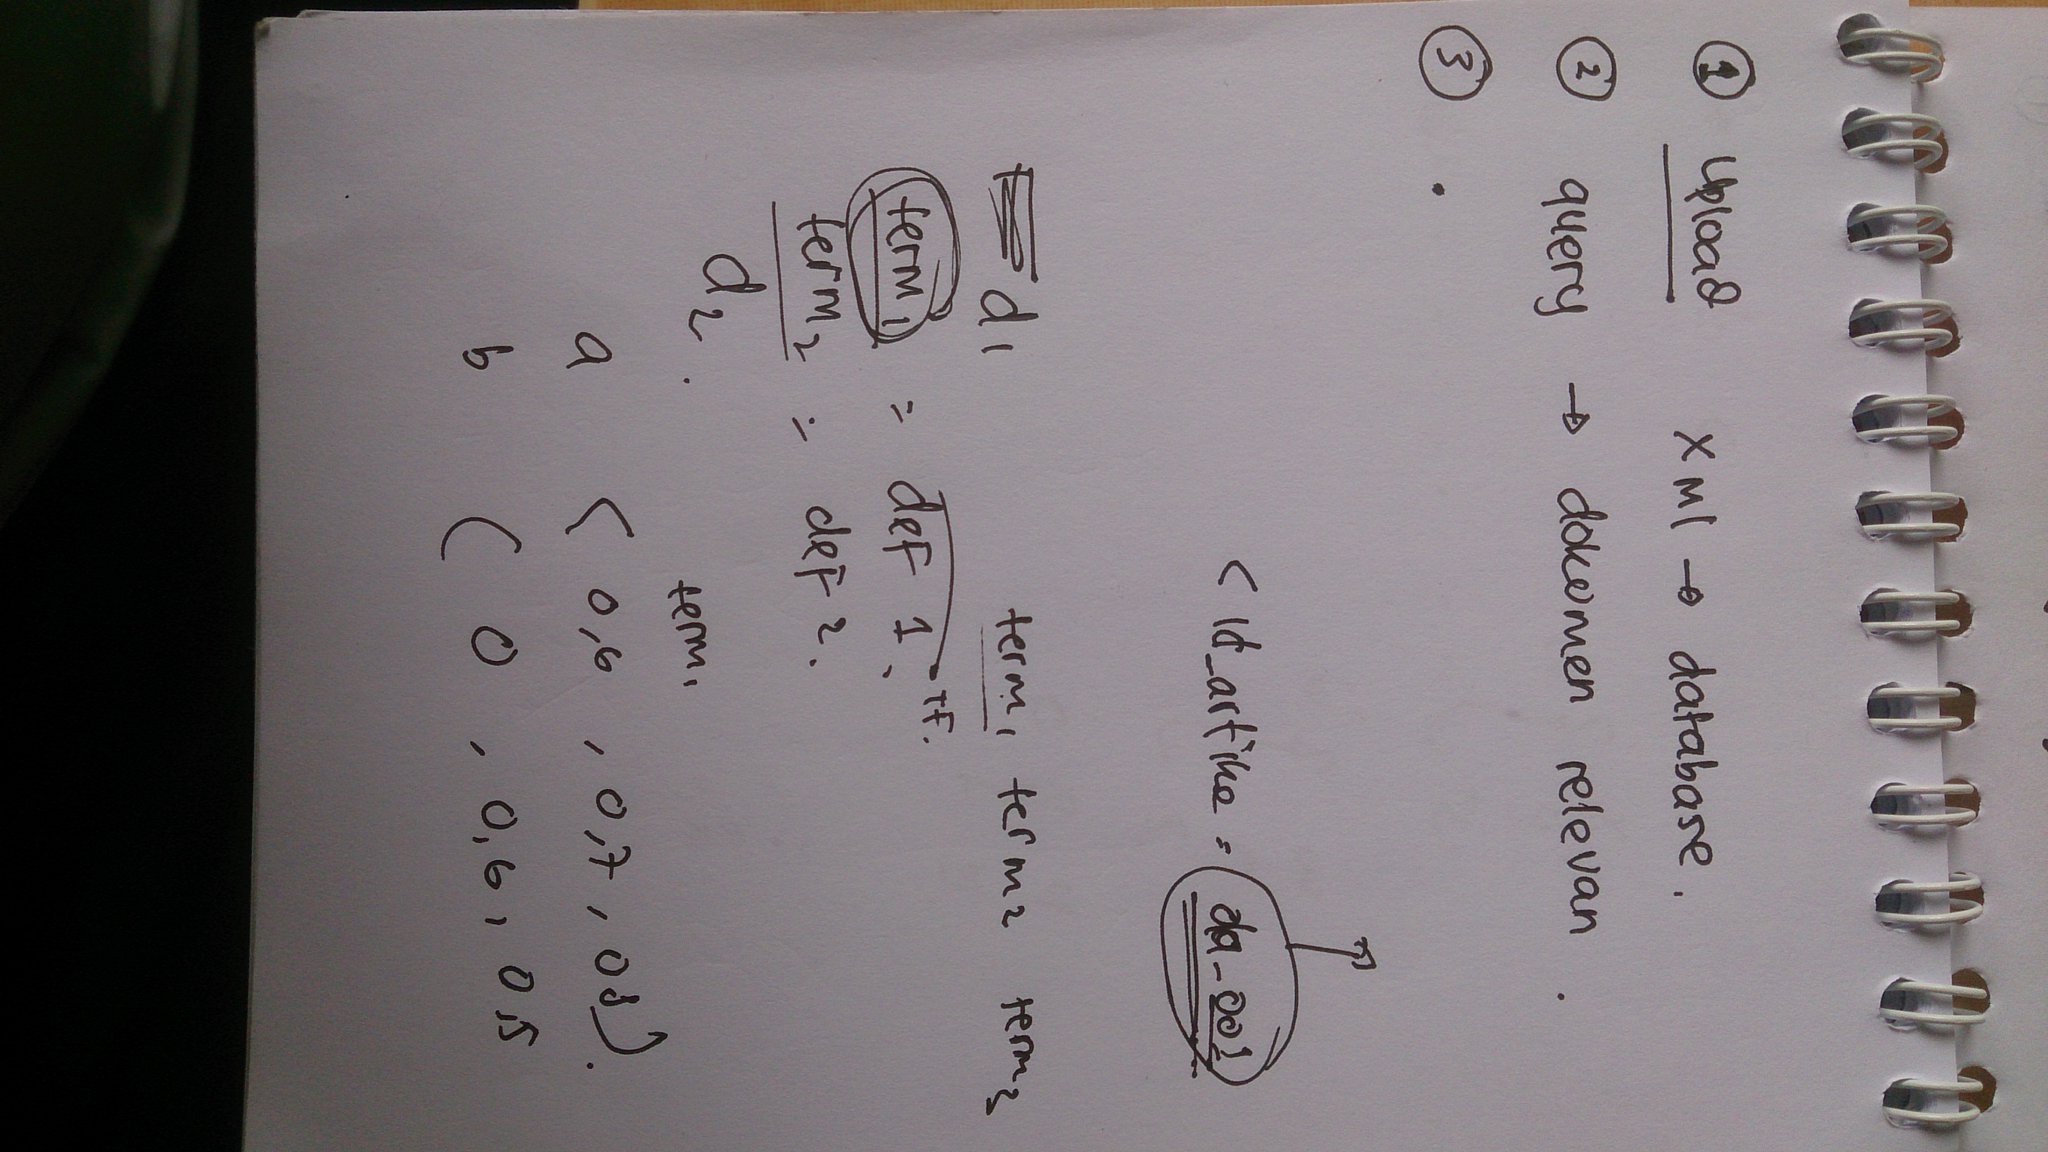 ① Upload XMl → database.
② query → dokumen relevan.
③ .
< Id_artike = da_001
d1 term1 term2 term3
term1 = def 1. TF.
term2 = def 2.
d2.
term1
a ( 0,6 , 0,7 , 0
b ( 0 , 0,6 , 0,5